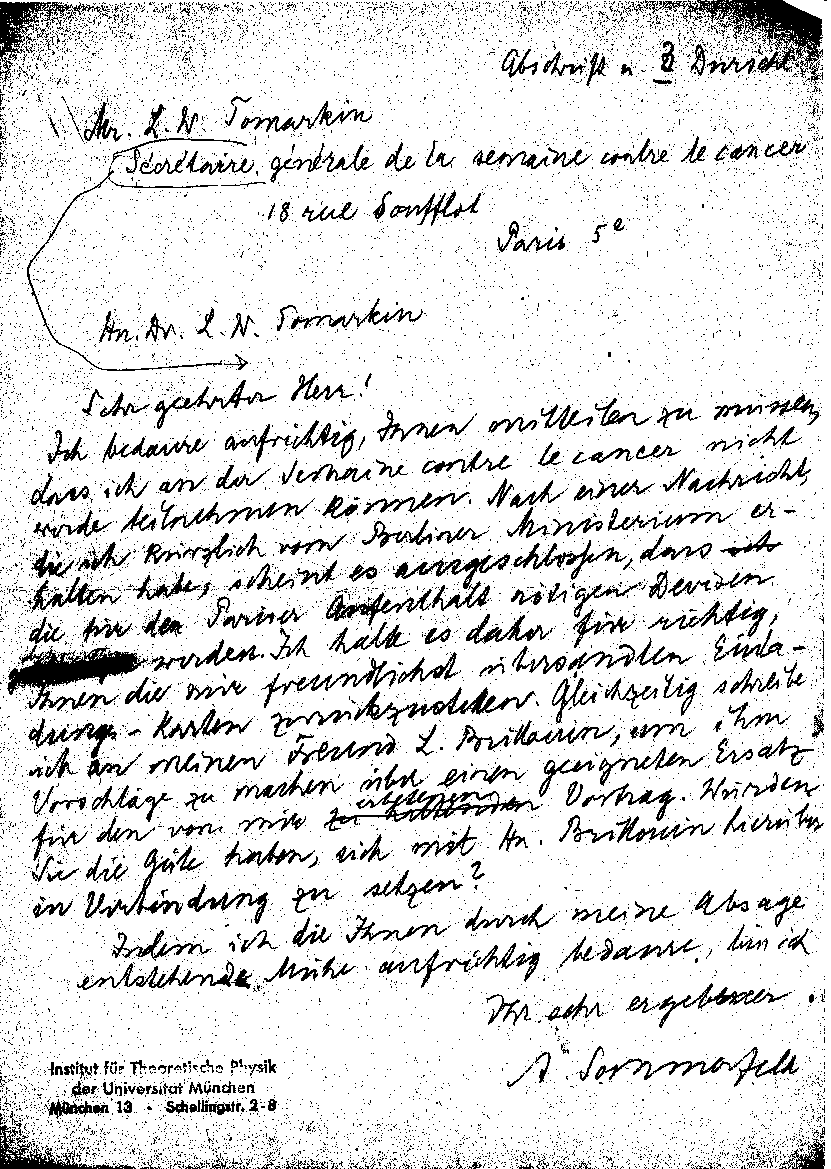 Abschrift u 3 Durschl
Mr. L. W. Tomarkin
Sécrétaire générale de la semaine contre le cancer
18 rue Soufflot
Paris 5e
Hn. Dr. L. W. Tomarkin
Sehr geehrter Herr!
Ich bedaure aufrichtig, Ihnen mitteilen zu müssen,
dass ich an der Semaine contre le cancer nicht
werde teilnehmen können. Nach einer Nachricht,
die ich kürzlich vom Berliner Ministerium er-
halten habe, scheint es ausgeschlossen, dass ich
die für den Pariser Aufenthalt nötigen Devisen
werden. Ich halte es daher für richtig,
Ihnen die mir freundlichst übersandten Einla-
dungs-Karten zurückzustellen. Gleichzeitig schreibe
ich an meinen Freund L. Brillouin, um ihm
Vorschläge zu machen über einen geeigneten Ersatz
erbetenen
für den von mir zu haltenden Vortrag. Würden
Sie die Güte haben, sich mit Hn. Brillouin hierüber
in Verbindung zu setzen?
Indem ich die Ihnen durch meine Absage
entstehende Mühe aufrichtig bedaure, bin ich
Ihr sehr ergebener.
A Sommerfeld
Institut für Theoretische Physik
der Universität München
München 13 - Schellingstr. 2-8